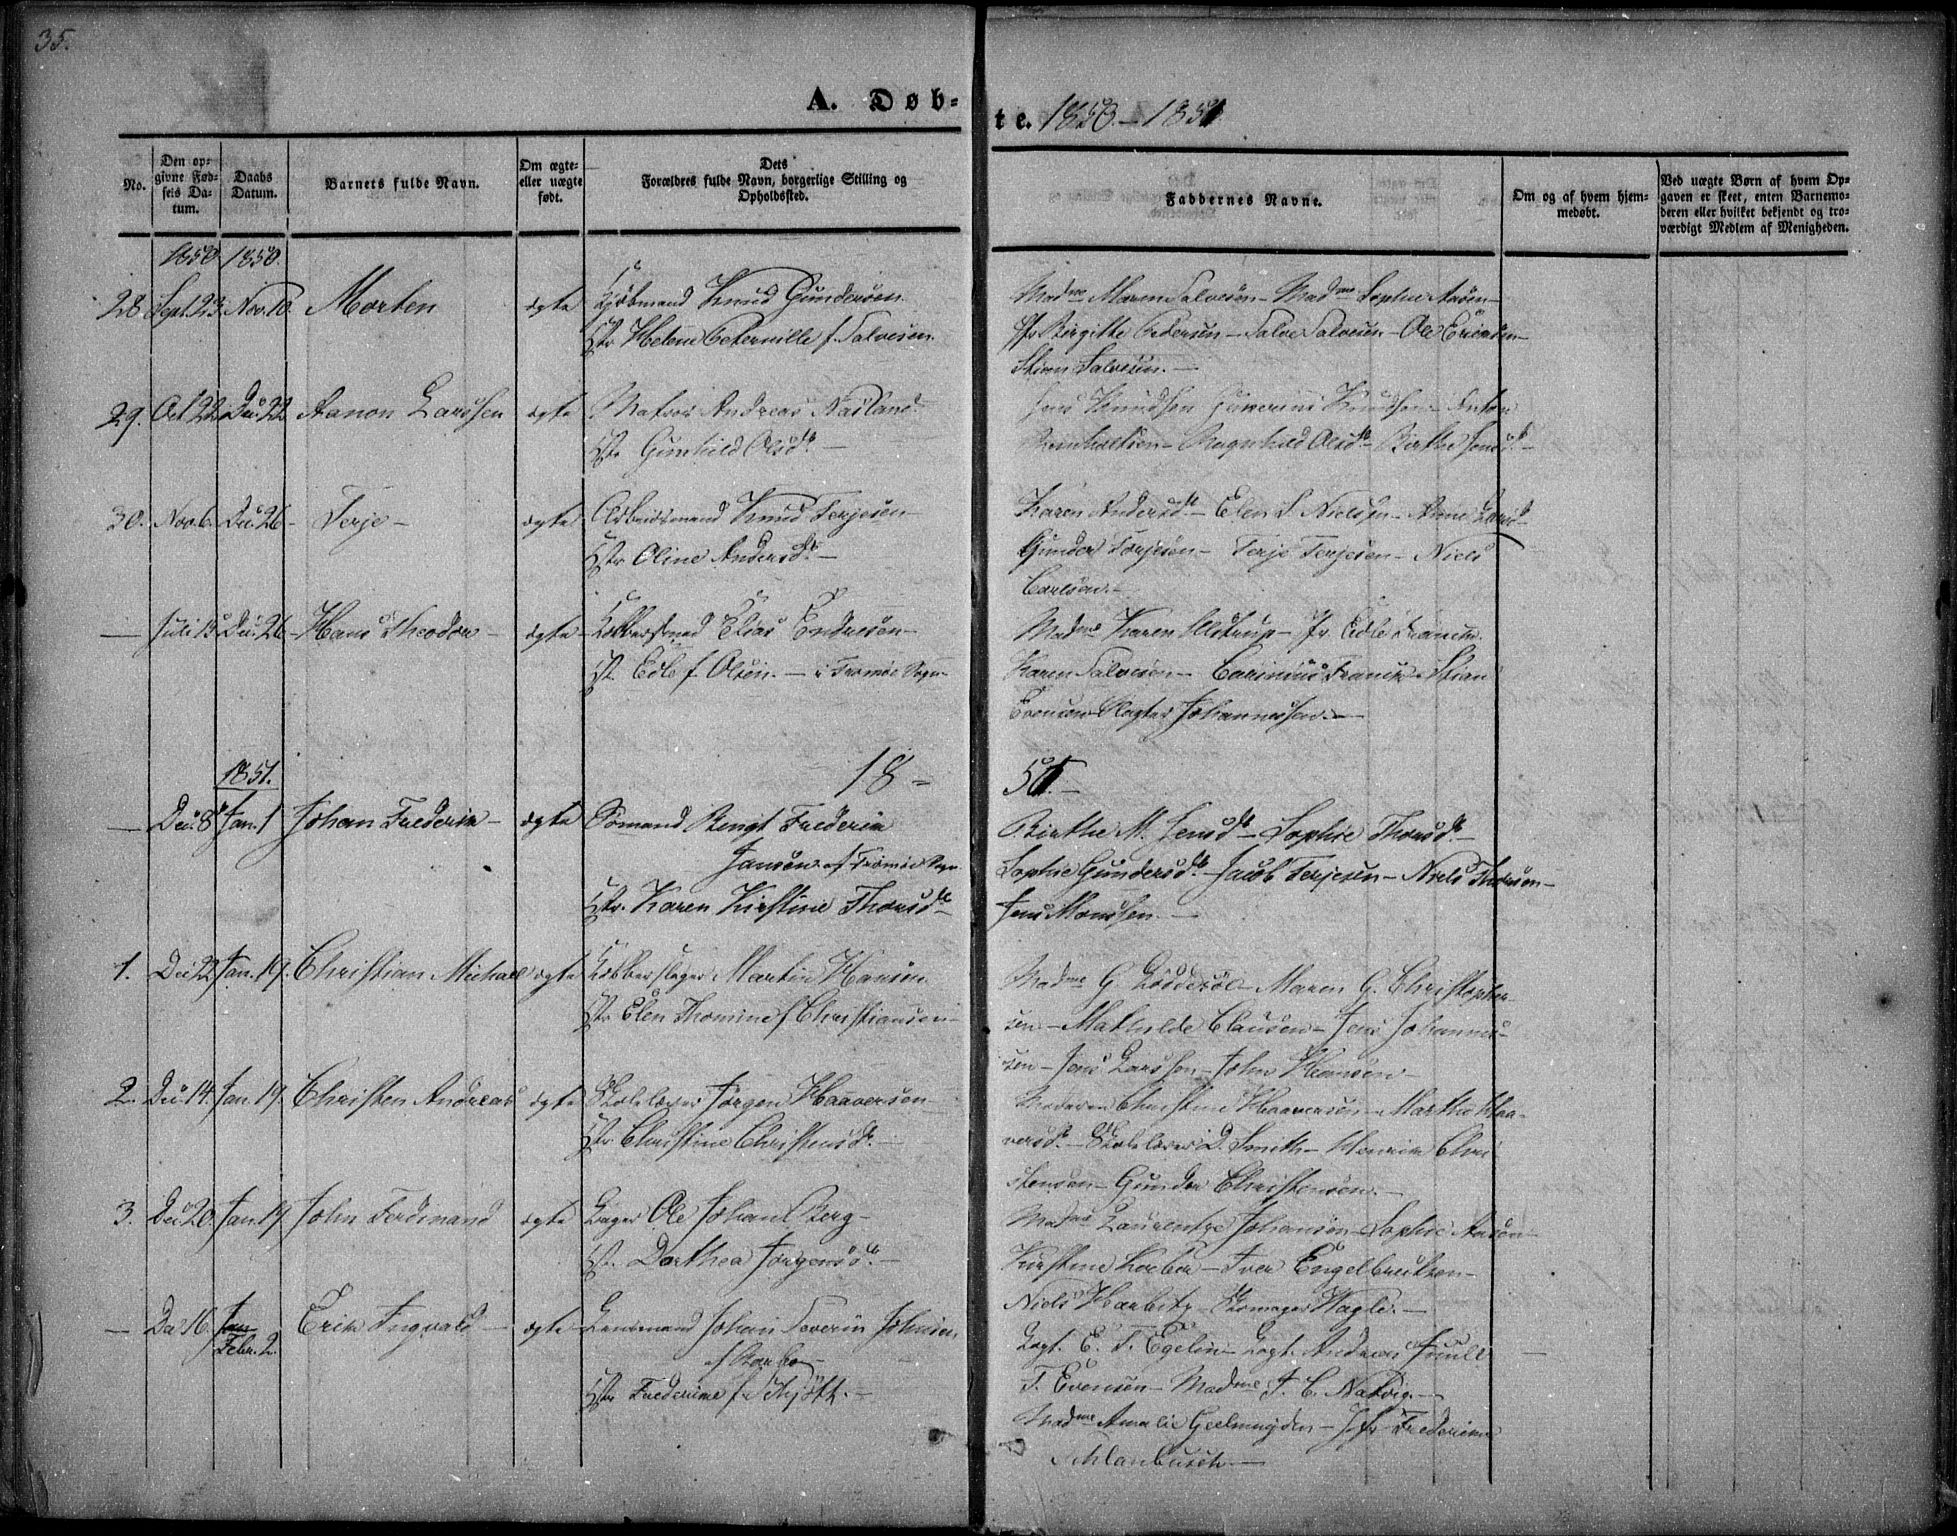 35.
A. Døb-
te. 1850.-1851
No.
Den op-
givne Fød-
sels Da-
tum.
Daabs
Datum.
Barnets fulde Navn.
Om ægte-
eller uægte
født.
Dets
Forældres fulde Navn, borgerlige Stilling og
Opholdssted.
Faddernes Navne.
Om og af hvem hjem-
medøbt.
Ved uægte Børn af hvem Op-
gaven er skeet, enten Barnemo-
deren eller hvilket bekjendt og tro-
værdigt Medlem af Menigheden.
1850 1850.
28 Sept. 23. Nov. 10. Morten ægte Kjøbmand Knud Gundersen
Helene Peternille f. Salvesen.
Madme Maren Salvesen - Madme Sophie Aasen -
Birgitte Pedersen - Salve Salvesen - Ole
Stian Salvesen. -
29. Oct 22 Dec. 22 Aanon Larssen ægte Matros Andreas
Gunhild Olsdt. -
Jens Knudsen Knudsen - Anton
- Ragnhild Olsdt - Birthe Jensdt -
30. Nov. 6. Dec. 26 - Terje - ægte Arbeidsmand Knud Terjesen -
Oline Andersdt. -
Karen Andersdt - Elen S. Nielsen - Anne Larsdt
Gunder Terjesen - Terje Terjesen - Niels
Carlsen. -
— Juli 15 Dec. 26 - Hans Theodor - ægte - Elias Endresen -
Edle f. Olsen. - i Tromøe Sogn -
Madme Karen Ulstrup - Jfr. Edle Franck.
Karen Salvesen - Carinius Franck - Stian
Evensen - Slagter Johannessen. -
1851.
18 =
51. -
— Dec. 8 Jan. 1 Johan Frederik - ægte Sømand Bengt Frederik
Jansen af Tromøe Sogn
Karen Kirstine Thorsdt -
Birthe M. Jensdt - Sophie Thorsdt -
Sophie Gundersdt - Jacob Terjesen - Niels Thorsen -
Jens Monssen. -
1. Dec 22 Jan. 19. Christian Michael ægte Kobberslager Martin Hansen
Elen Thomine f Christiansen -
Madme G - Maren G. Christopher-
sen - Mathilde Clausen - Jens Johannes-
sen - Jens Larssen - John Hansen -
2. Dec 14. Jan. 19. Christen Andreas ægte Skolelærer Jørgen Haaversen
Christine Christensdt. -
Moderen Christine Haaversen - Marthe Haa-
versdt. - Skolelærer D. Smith - Henrik Chri-
stensen - Gunder Christensen. -
3. Dec 20. Jan. 19. John Ferdinand ægte Bager Ole Johan Berg -
Dorthea Jørgensdt. -
Madme Laurentze Johansen - Sophie Aasen -
Kirstine - Iver Engelbrektsen -
Niels Harbitz - Skomager Wagle. -
— Dec 16. Jan
Febr. 2. Erik Ingvald - ægte - Lensmand Johan Severin Johnsen
af
Frederikke f. Schjøtt. -
Capt. E. T. Egelin - Capt. Andreas Juull -
T. Evensen - Madme J. C. Natvig. -
Madme Amalie Geelmuyden - Jfr Frederikke
Schlanbusch -